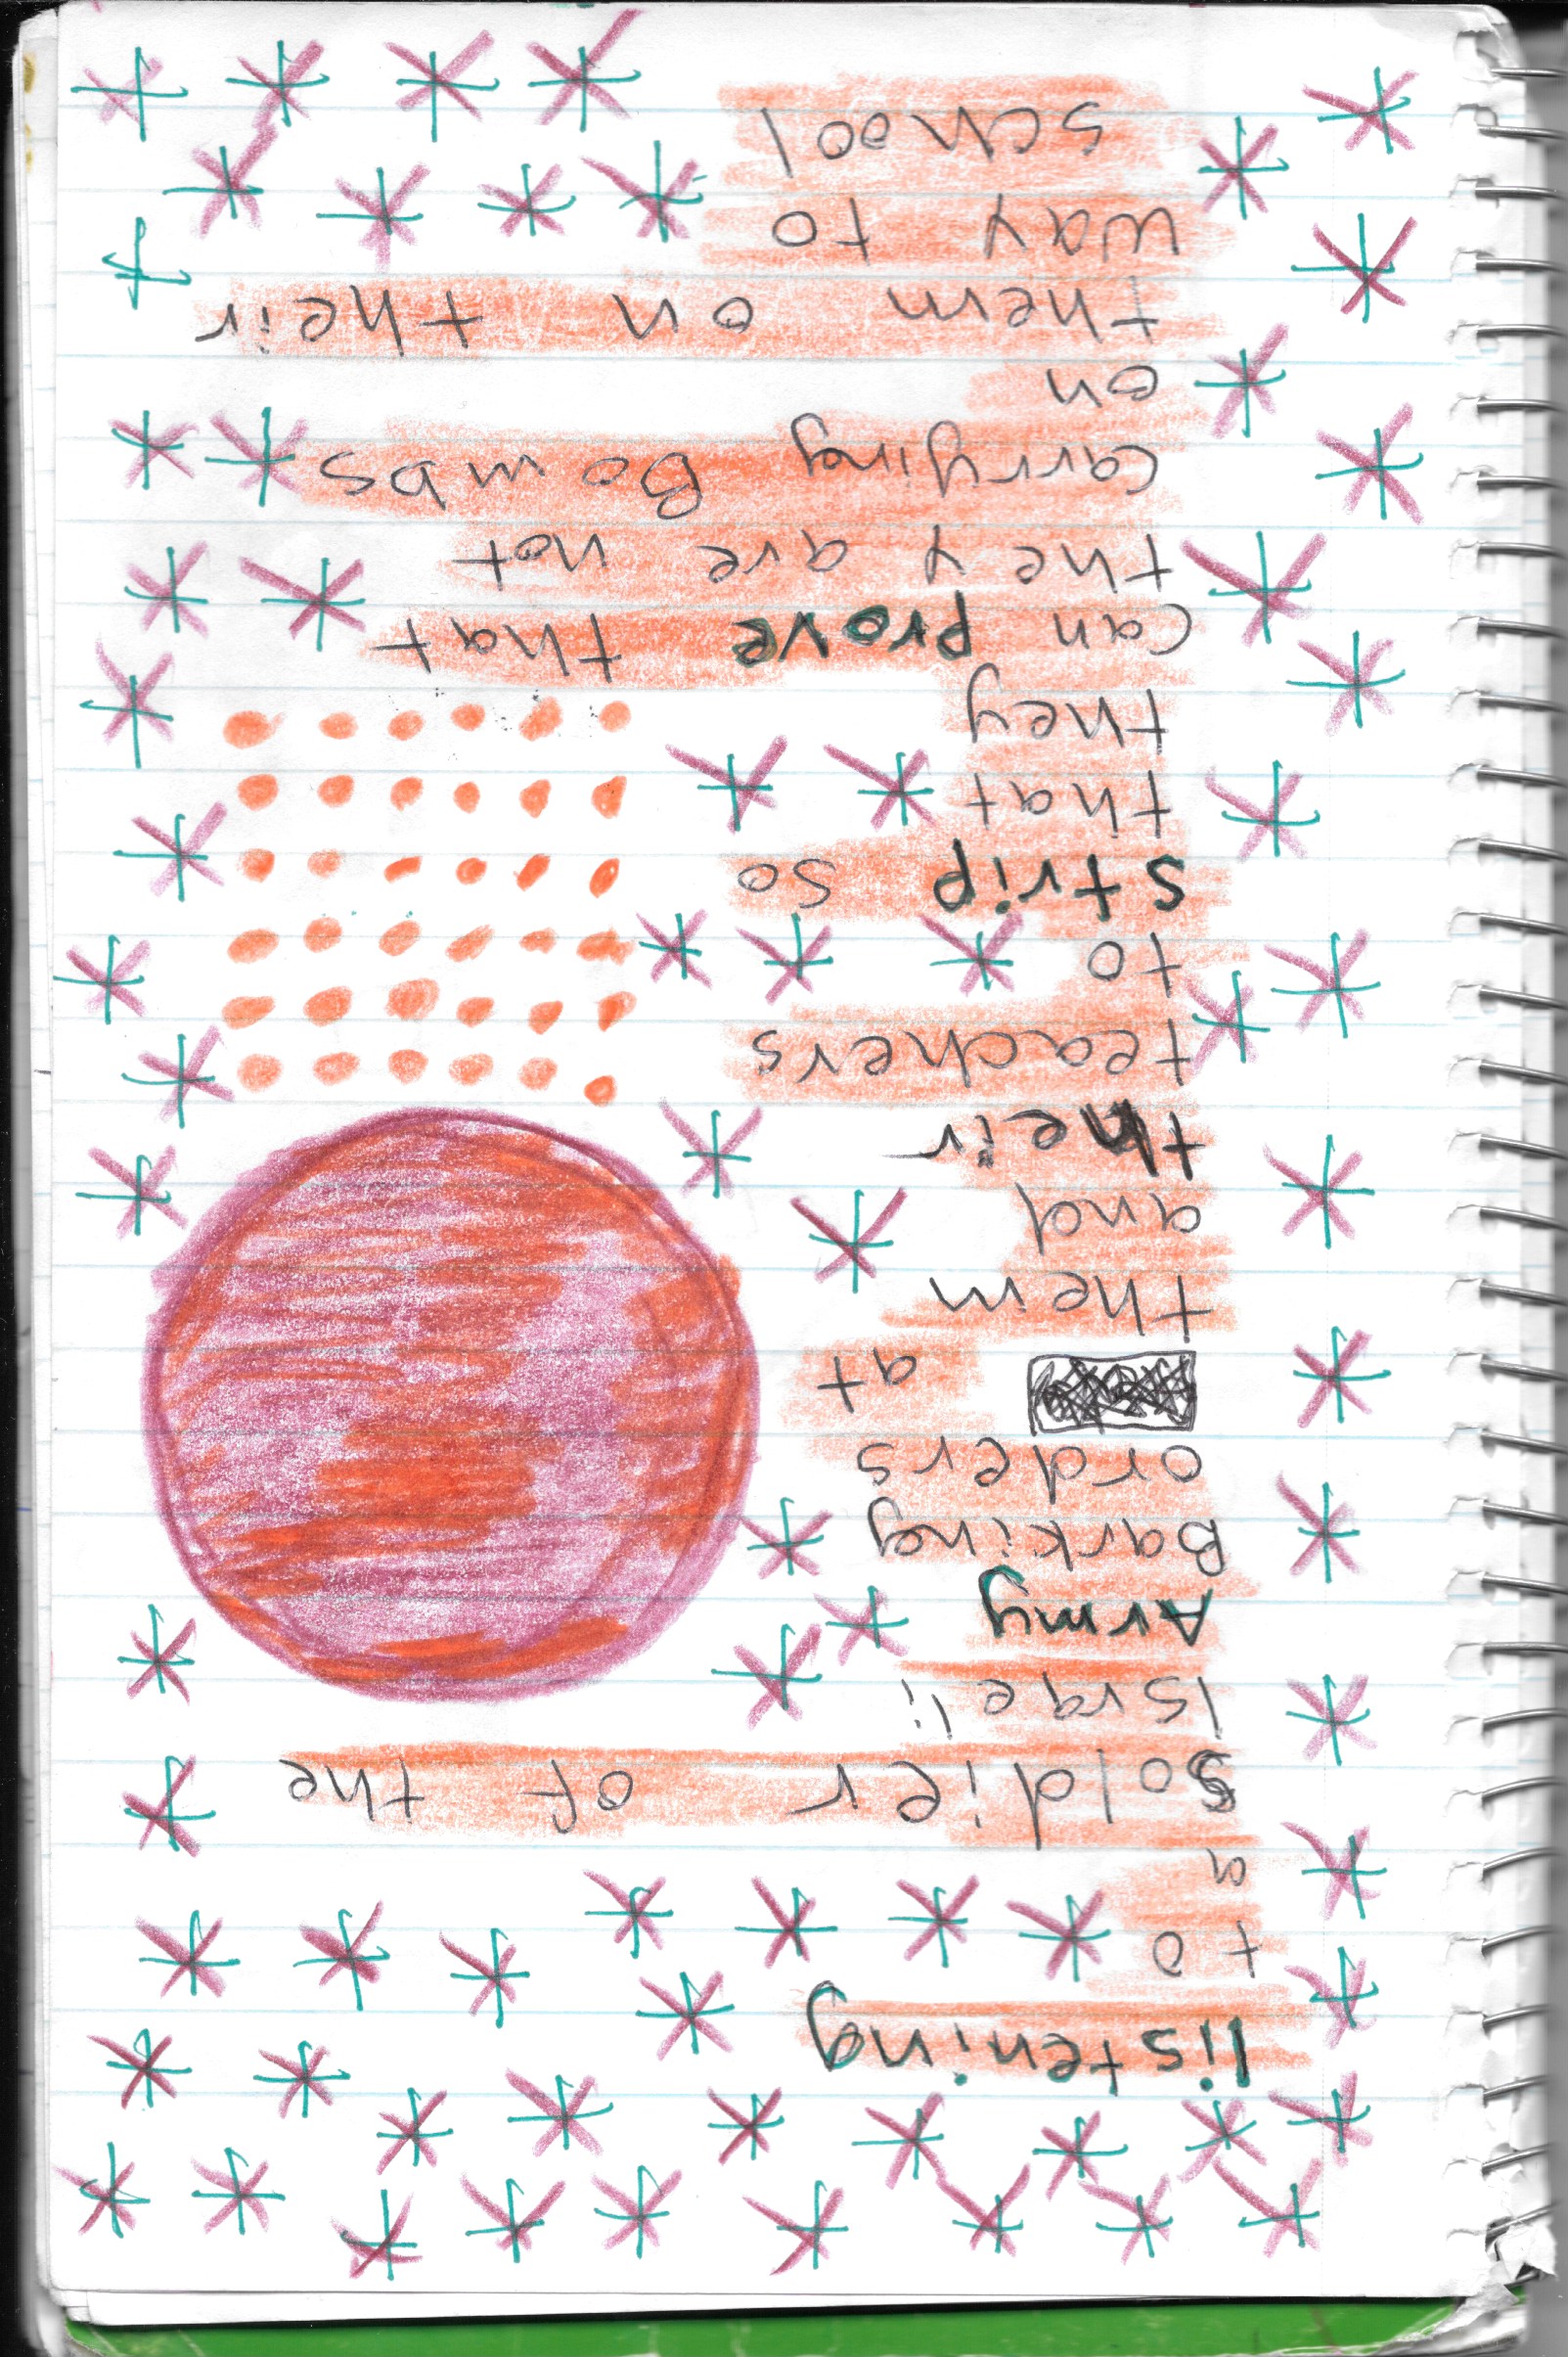 listening
to
a
Soldier of the
Israeli
Army
Barking
orders
at
them
and
their
teachers
to
strip so
that
they
can prove that
they are not
carrying Bombs
on
them on their
way to
school